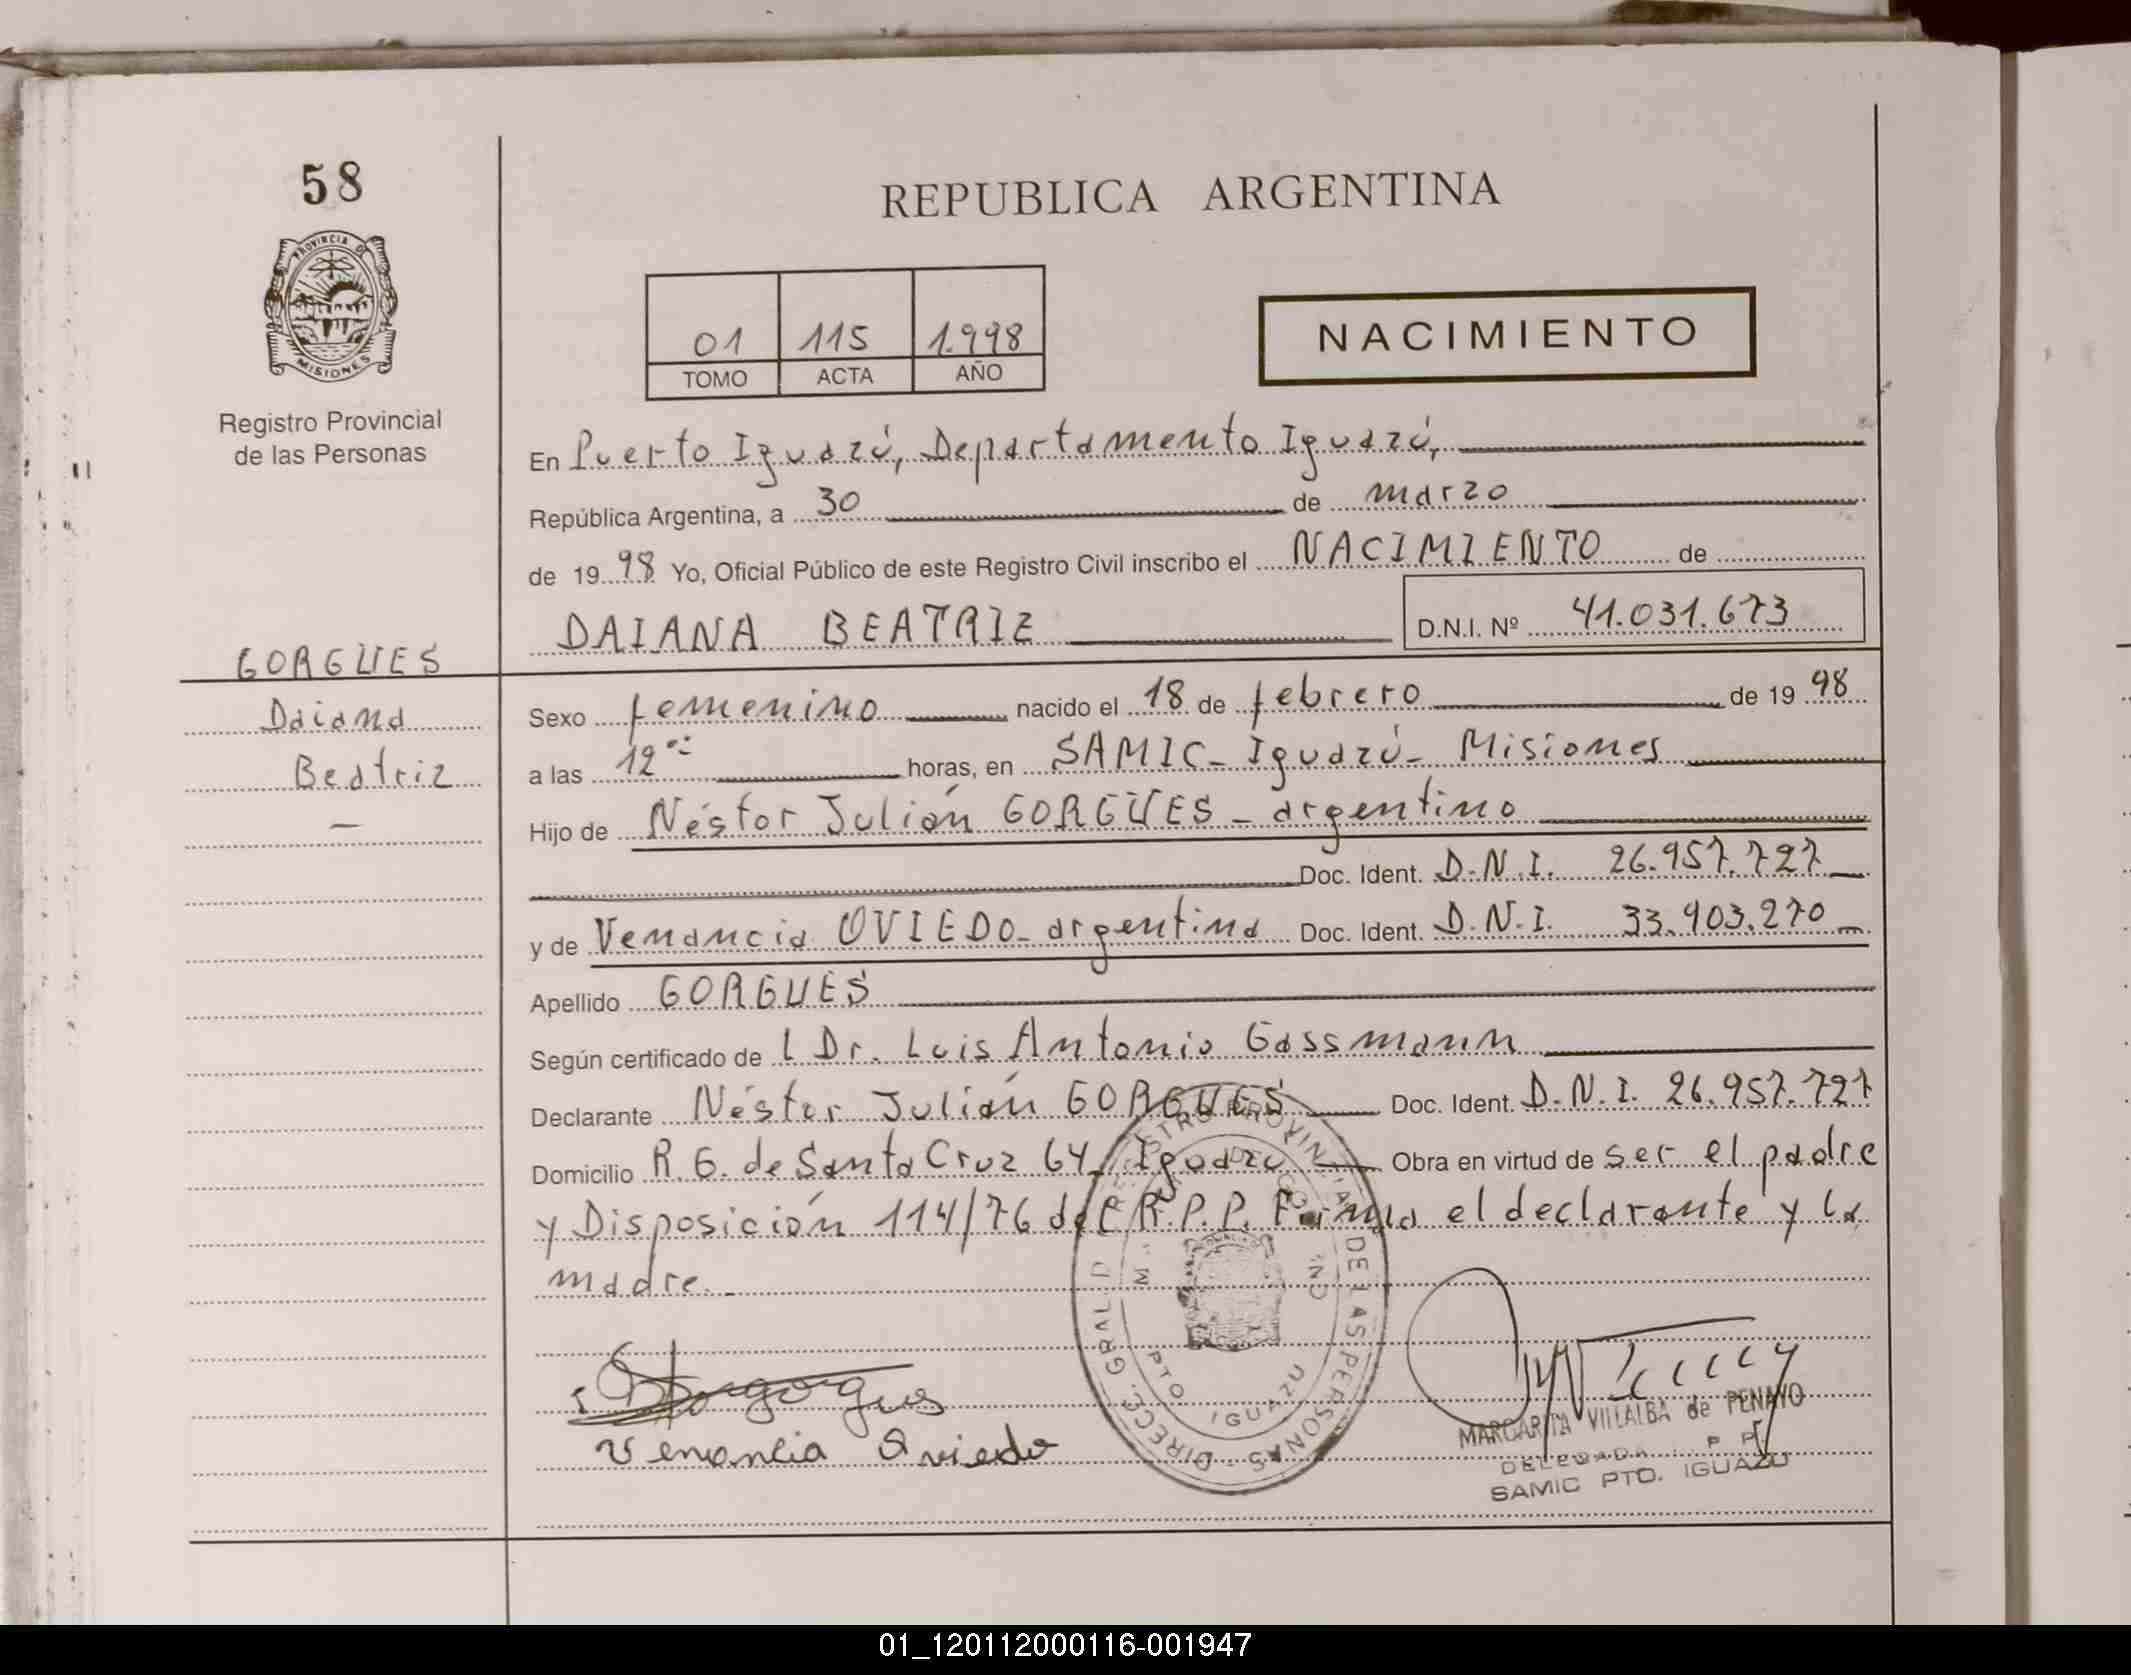 58
REPUBLICA ARGENTINA
PROVINCIA DE
MISIONES
Registro Provincial
de las Personas
01 115 1.998
TOMO ACTA AÑO
NACIMIENTO
En Puerto Iguazú, Departamento Iguazú,
República Argentina, a 30 de marzo
de 19 98 Yo, Oficial Público de este Registro Civil inscribo el NACIMIENTO de
DAIANA BEATRIZ D.N.I. Nº 41.031.673
GORGUES
Daiana
Beatriz
—
Sexo femenino nacido el 18 de febrero de 19 98
a las 12 horas, en SAMIC - Iguazú - Misiones
Hijo de Néstor Julián GORGÜES - argentino
Doc. Ident. D.N.I. 26.957.727
y de Venancia OVIEDO - argentina Doc. Ident. D.N.I. 33.903.270
Apellido GORGUES
Según certificado de l Dr. Luis Antonio Gassmann
Declarante Néstor Julián GORGUES Doc. Ident. D.N.I. 26.957.727
Domicilio R. G. de Santa Cruz 64 - Iguazú Obra en virtud de ser el padre
y Disposición 114/76 del R.P.P. Firma el declarante y la
madre.-
Venancia Oviedo
DIRECC. GRAL. D REGISTRO PROVINCIAL DE LAS PERSONAS
PTO. IGUAZU
MARGARITA VILLALBA de PENAYO
DELEGADA
SAMIC PTO. IGUAZU
01_120112000116-001947